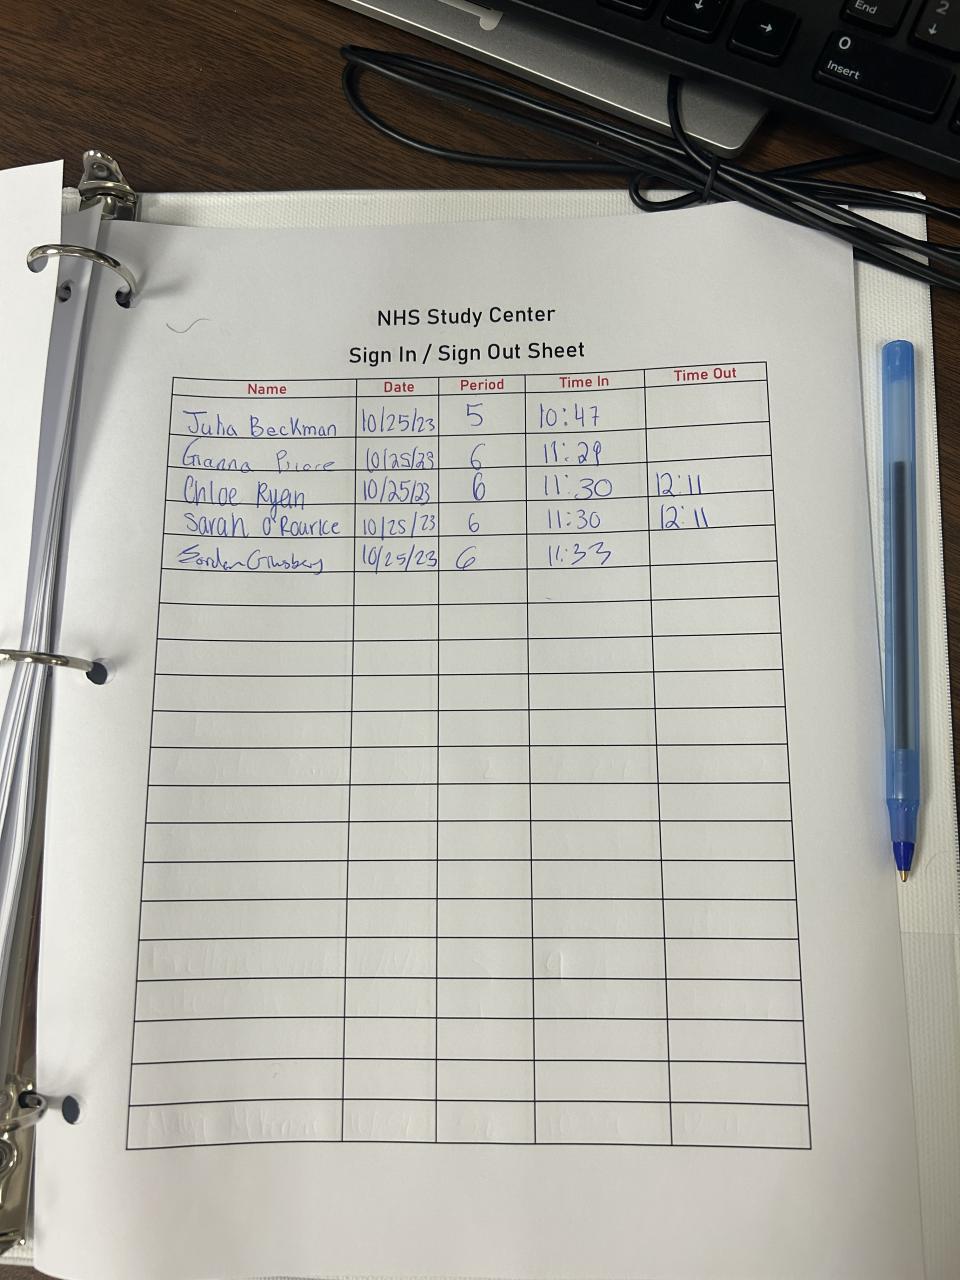 End
2
↓
↓
→
0
Insert
NHS Study Center
Sign In / Sign Out Sheet
Name Date Period Time In Time Out
Julia Beckman 10/25/23 5 10:47
Gianna 10/25/23 6 11:29
Chloe Ryan 10/25/23 6 11:30 12:11
Sarah O'Rourke 10/25/23 6 11:30 12:11
Ginsberg 10/25/23 6 11:33